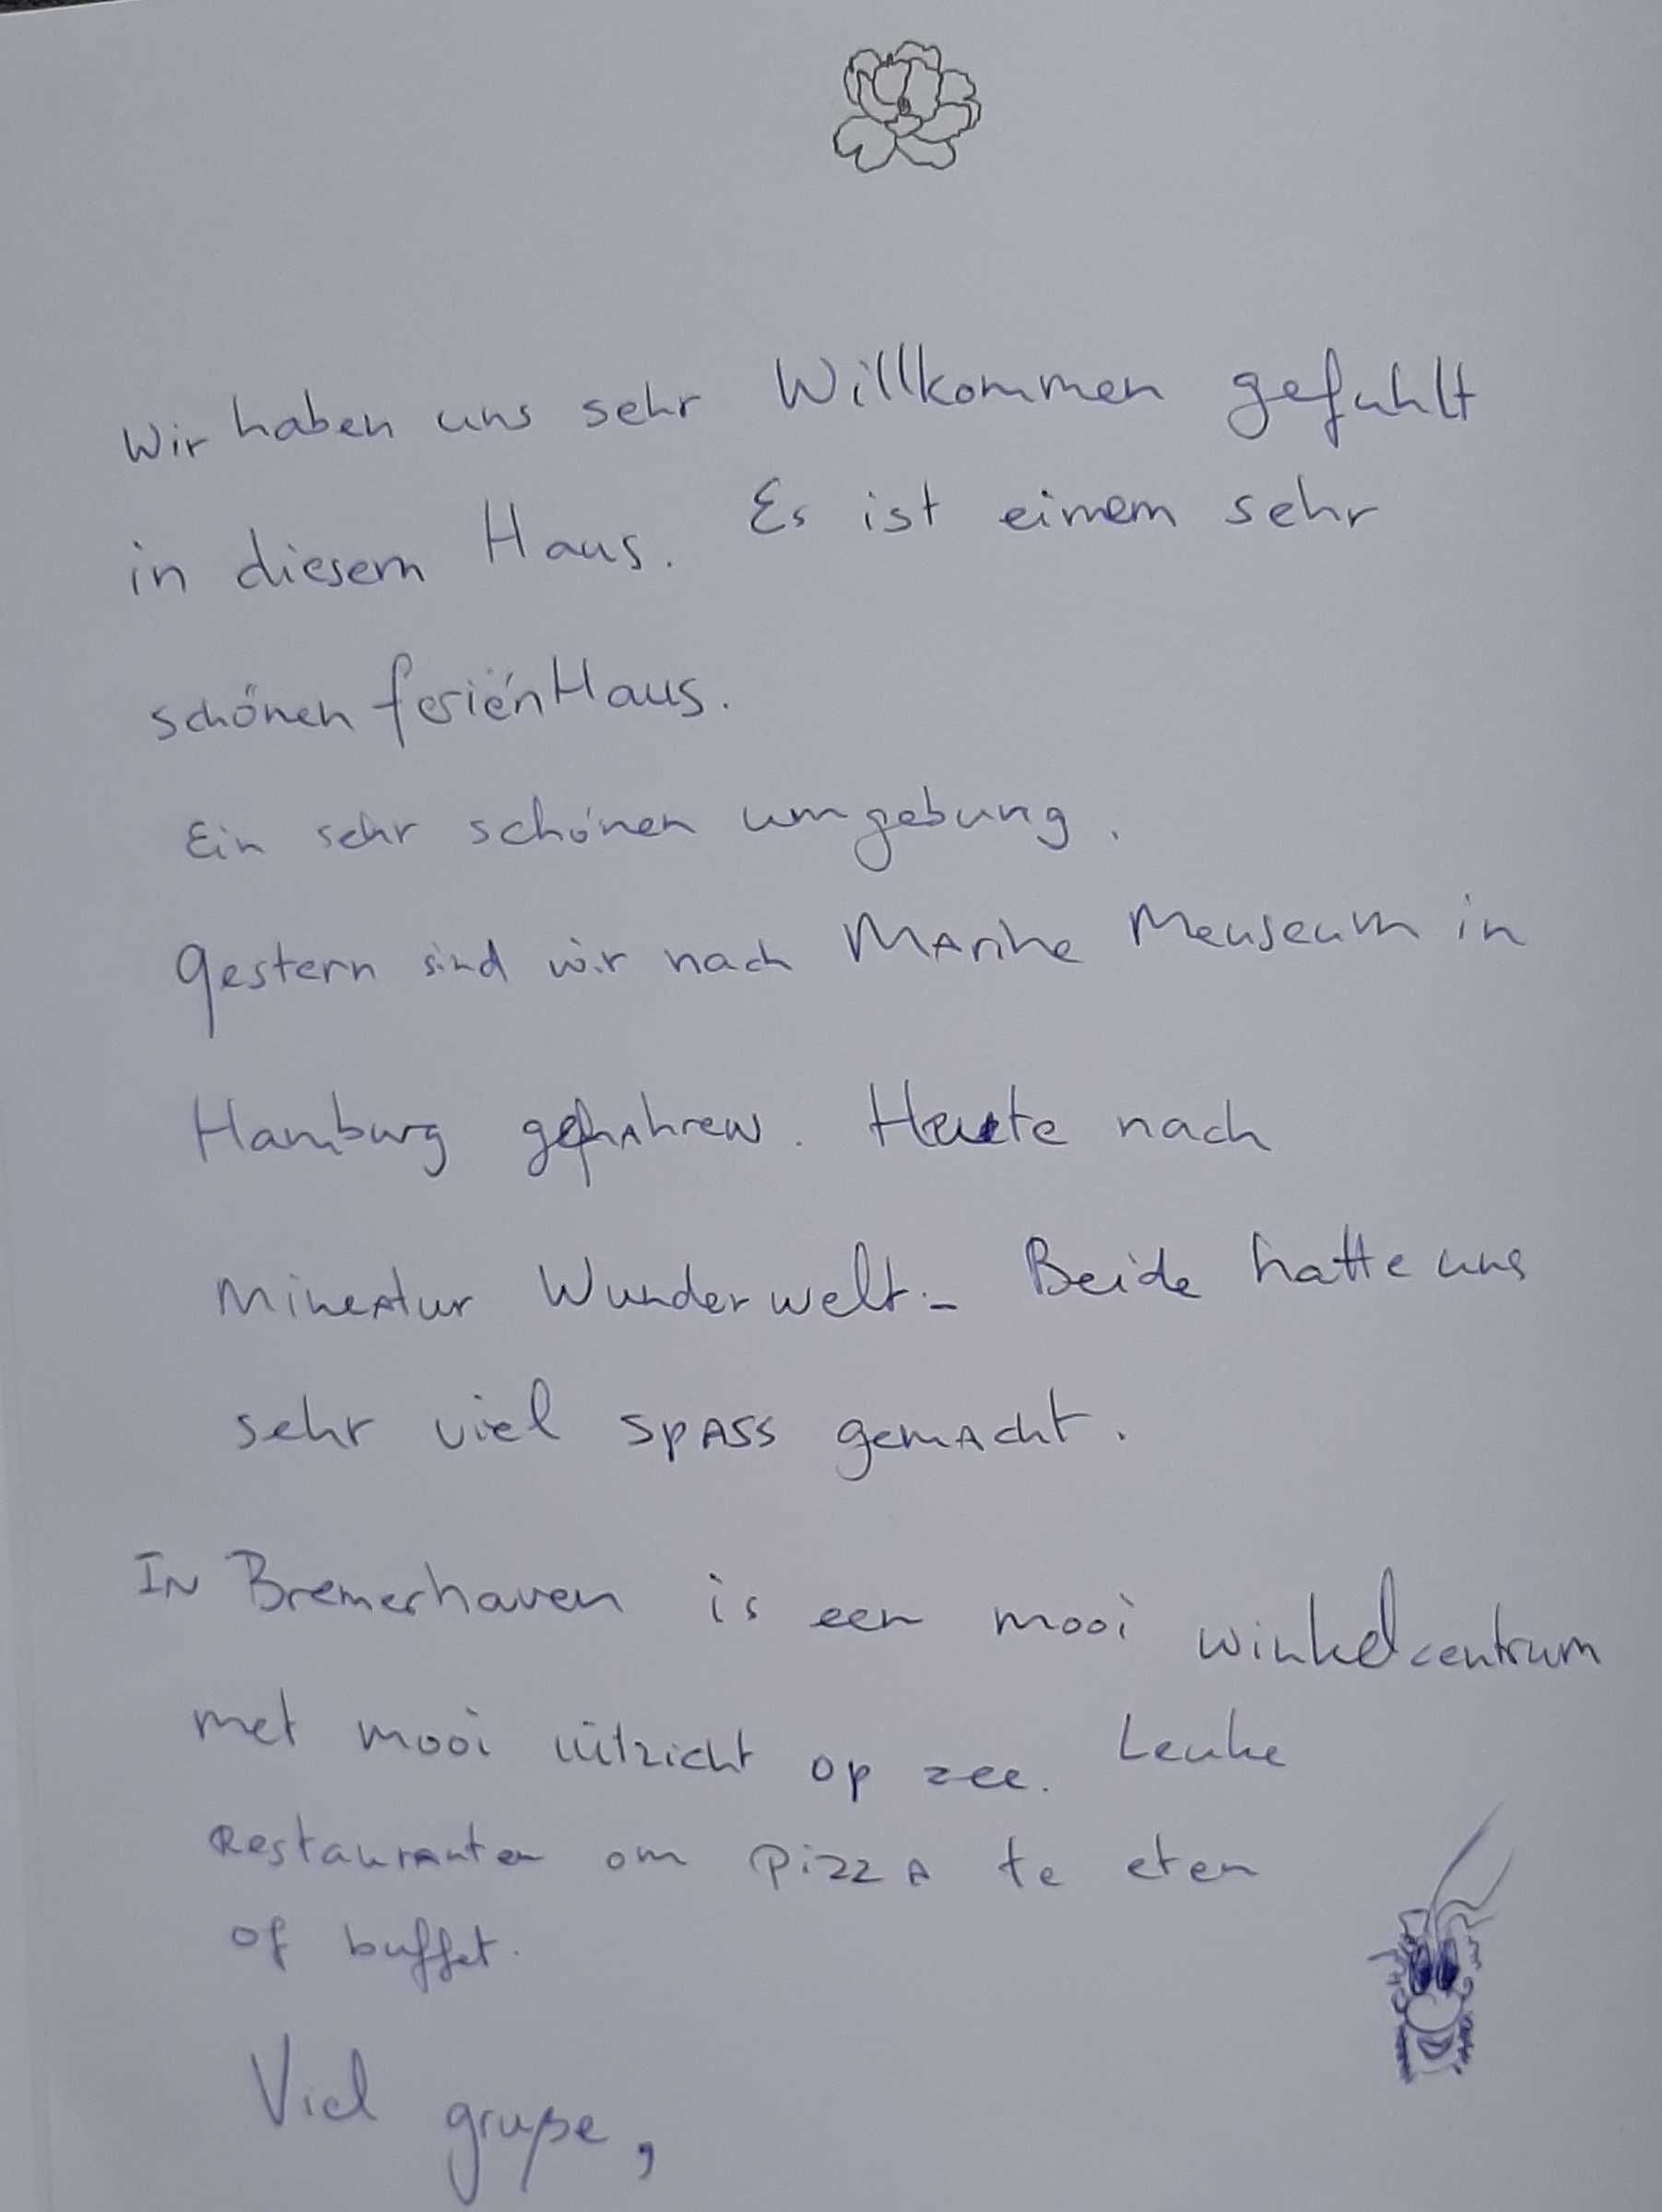 Wir haben uns sehr Willkommen gefuhlt
in diesem Haus. Es ist einem sehr
schönen feriënHaus.
Ein sehr schönen umgebung.
gestern sind wir nach MArine Meuseum in
Hamburg gefahren. Heute nach
MineAtur Wunderwelt. Beide hatte uns
sehr viel spASS gemAcht.
IN Bremerhaven is een mooi winkelcentrum
met mooi uitzicht op zee. Leuke
Restauranten om PizzA te eten
of buffet.
Viel gruße,